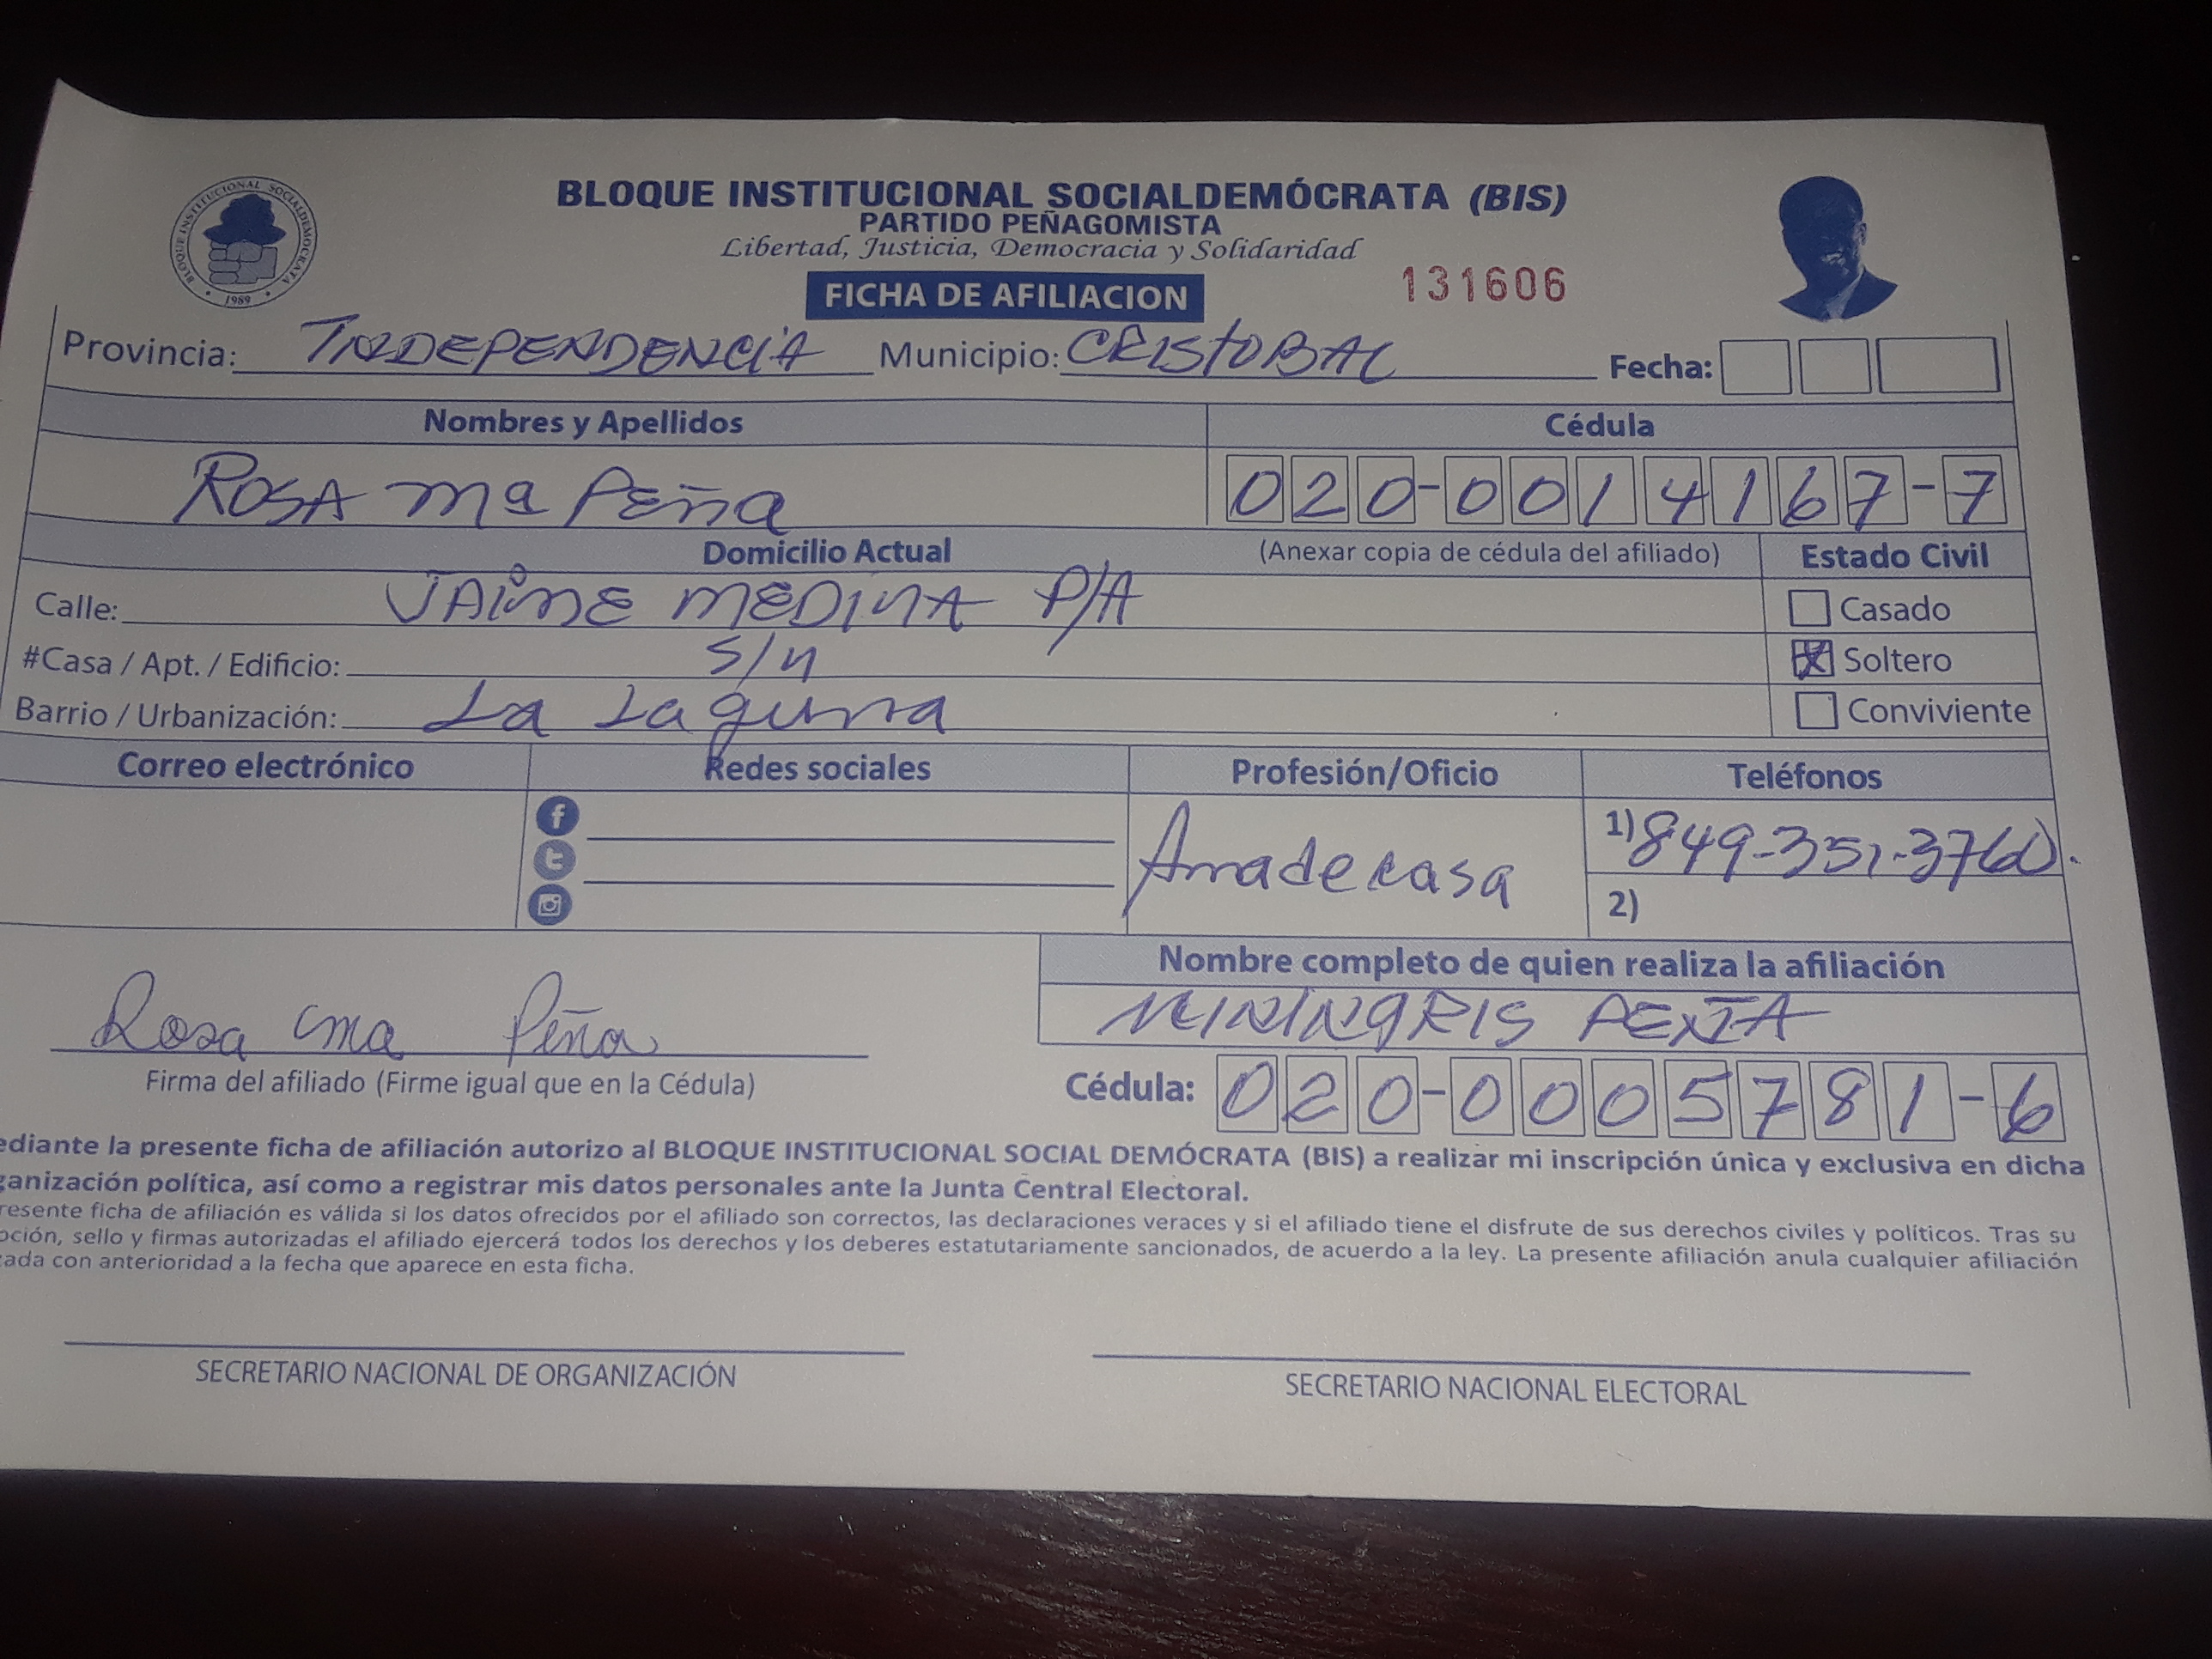 BLOQUE INSTITUCIONAL SOCIALDEMÓCRATA (BIS)
PARTIDO PEÑAGOMISTA
Libertad, Justicia, Democracia y Solidaridad
BLOQUE INSTITUCIONAL SOCIALDEMOCRATA
1989
FICHA DE AFILIACION 131606
Provincia: INDEPENDENCIA Municipio: CRISTOBAL Fecha:
Nombres y Apellidos Cédula
ROSA Mª PEÑA 020-0014167-7
Domicilio Actual (Anexar copia de cédula del afiliado) Estado Civil
Calle: JAIME MEDINA P/A Casado
#Casa / Apt. / Edificio: S/N Soltero
Barrio / Urbanización: La Laguna Conviviente
Correo electrónico Redes sociales Profesión/Oficio Teléfonos
Ama de casa 1)
2)
Nombre completo de quien realiza la afiliación
Rosa ma Peña MININGRIS PEÑA
Firma del afiliado (Firme igual que en la Cédula) Cédula: 020-0005781-6
ediante la presente ficha de afiliación autorizo al BLOQUE INSTITUCIONAL SOCIAL DEMÓCRATA (BIS) a realizar mi inscripción única y exclusiva en dicha
ganización política, así como a registrar mis datos personales ante la Junta Central Electoral.
resente ficha de afiliación es válida si los datos ofrecidos por el afiliado son correctos, las declaraciones veraces y si el afiliado tiene el disfrute de sus derechos civiles y políticos. Tras su
pción, sello y firmas autorizadas el afiliado ejercerá todos los derechos y los deberes estatutariamente sancionados, de acuerdo a la ley. La presente afiliación anula cualquier afiliación
zada con anterioridad a la fecha que aparece en esta ficha.
SECRETARIO NACIONAL DE ORGANIZACIÓN SECRETARIO NACIONAL ELECTORAL